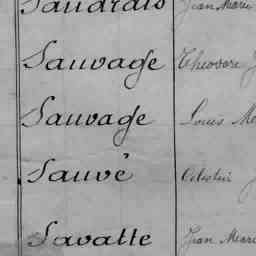 Saudrais Jean Marie
Sauvage Théodore J
Sauvage Louis M
Sauvé Célestin J
Savatte Jean Marie